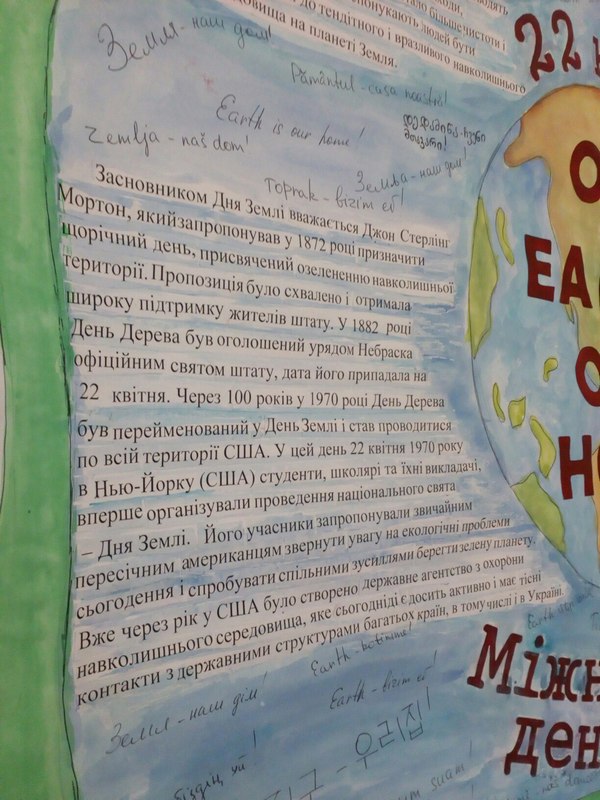 до тендітного і вразливого навколишнього
на планеті Земля.
22
Земля - наш дом!
Pământul - casa noastră!
Earth is our home!
დედამიწა - ჩვენი
მთავარი!
Zemlja - naš dom!
Земља - наш дом!
Toprak - bizim ev!
Засновником Дня Землі вважається Джон Стерлінг
Мортон, якийзапропонував у 1872 році призначити
щорічний день, присвячений озелененню навколишньої
території. Пропозиція було схвалено і отримала
широку підтримку жителів штату. У 1882 році
День Дерева був оголошений урядом Небраска
офіційним святом штату, дата його припадала на
22 квітня. Через 100 років у 1970 році День Дерева
був перейменований у День Землі і став проводитися
по всій території США. У цей день 22 квітня 1970 року
в Нью-Йорку (США) студенти, школярі та їхні викладачі,
вперше організували проведення національного свята
– Дня Землі. Його учасники запропонували звичайним
пересічним американцям звернути увагу на екологічні проблеми
сьогодення і спробувати спільними зусиллями берегти зелену планету.
Вже через рік у США було створено державне агентство з охорони
навколишнього середовища, яке сьогодніді є досить активно і має тісні
контакти з державними структурами багатьох країн, в тому числі і в Україні.
O
EA
O
H
Earth
Земля - наш дім!
Earth - bizim ev!
우리집!
Міжн
ден